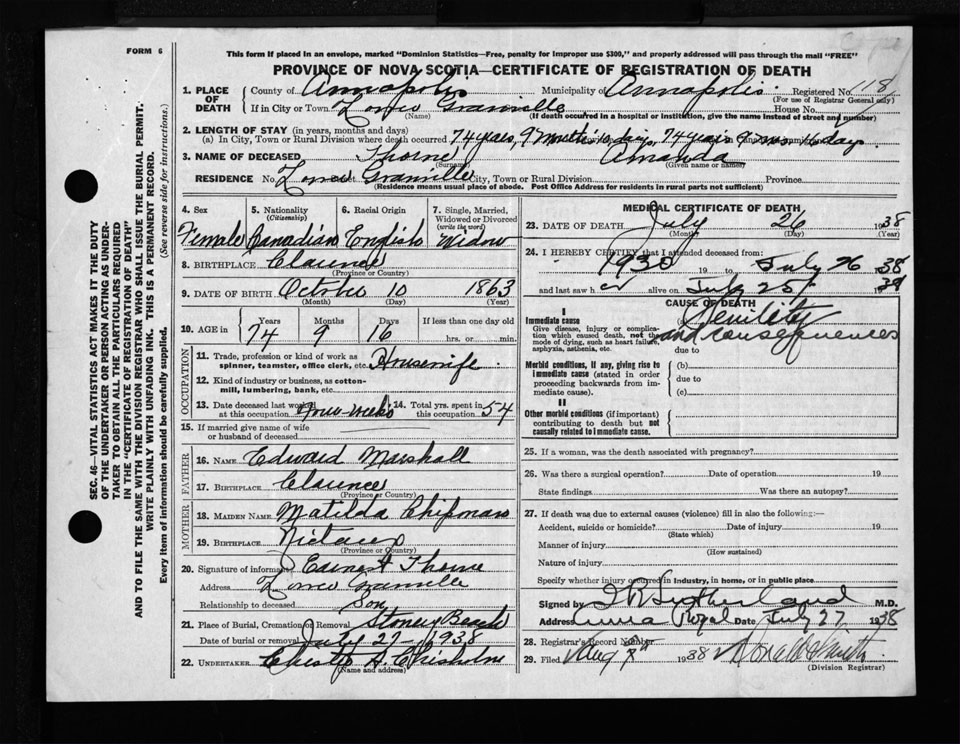 FORM 6
This form if placed in an envelope, marked "Dominion Statistics—Free, penalty for improper use $300," and properly addressed will pass through the mail "FREE"
PROVINCE OF NOVA SCOTIA—CERTIFICATE OF REGISTRATION OF DEATH
1. PLACE OF DEATH County of Annapolis Municipality of Annapolis Registered No. 118
(For use of Registrar General only)
If in City or Town Lower Granville House No.
(Name) (If death occurred in a hospital or institution, give the name instead of street and number)
2. LENGTH OF STAY (in years, months and days)
(a) In City, Town or Rural Division where death occurred 74 years, 9 months 16 days, 74 years 9 mos. 16 days
3. NAME OF DECEASED Thorne Amanda
(Surname) (Given name or names)
RESIDENCE No. Lower Granville City, Town or Rural Division Province
(Residence means usual place of abode. Post Office Address for residents in rural parts not sufficient)
4. Sex Female
5. Nationality (Citizenship) Canadian
6. Racial Origin English
7. Single, Married, Widowed or Divorced (write the word) Widow
8. BIRTHPLACE Clarence
(Province or Country)
9. DATE OF BIRTH October 10 1863
(Month) (Day) (Year)
10. AGE in Years Months Days If less than one day old
74 9 16 hrs. or min.
OCCUPATION
11. Trade, profession or kind of work as spinner, teamster, office clerk, etc. Housewife
12. Kind of industry or business, as cotton-mill, lumbering, bank, etc.
13. Date deceased last worked at this occupation weeks 14. Total yrs. spent in this occupation 54
15. If married give name of wife or husband of deceased
FATHER
16. NAME Edward Marshall
17. BIRTHPLACE Clarence
(Province or Country)
MOTHER
18. MAIDEN NAME Matilda Chipman
19. BIRTHPLACE Nictaux
(Province or Country)
20. Signature of informant Earnest Thorne
Address Lower Granville
Relationship to deceased Son
21. Place of Burial, Cremation or Removal Stoney Beach
Date of burial or removal July 27 - 1938
22. UNDERTAKER A. Chisholm
(Name and address)
MEDICAL CERTIFICATE OF DEATH
23. DATE OF DEATH July 26 1938
(Month) (Day) (Year)
24. I HEREBY CERTIFY that I attended deceased from:
1930 19 to July 26 1938
and last saw her alive on July 25 1938
CAUSE OF DEATH
I
Immediate cause Senility
Give disease, injury or complication which caused death, not the mode of dying, such as heart failure, asphyxia, asthenia, etc.
and consequences
due to
Morbid conditions, if any, giving rise to immediate cause (stated in order proceeding backwards from immediate cause).
(b)
due to
(c)
II
Other morbid conditions (if important) contributing to death but not causally related to immediate cause.
25. If a woman, was the death associated with pregnancy?
26. Was there a surgical operation? Date of operation 19
State findings Was there an autopsy?
27. If death was due to external causes (violence) fill in also the following:—
Accident, suicide or homicide? Date of injury 19
(State which)
Manner of injury
(How sustained)
Nature of injury
Specify whether injury occurred in industry, in home, or in public place
Signed by Sutherland M.D.
Address Anna Royal Date July 27 1938
28. Registrar's Record Number
29. Filed Aug 1938 Smith
(Division Registrar)
SEC. 46—VITAL STATISTICS ACT MAKES IT THE DUTY
OF THE UNDERTAKER OR PERSON ACTING AS UNDERTAKER
TO OBTAIN ALL THE PARTICULARS REQUIRED
IN THE "CERTIFICATE OF REGISTRATION OF DEATH"
AND TO FILE THE SAME WITH THE DIVISION REGISTRAR WHO SHALL ISSUE THE BURIAL PERMIT.
WRITE PLAINLY WITH UNFADING INK. THIS IS A PERMANENT RECORD.
Every item of information should be carefully supplied. (See reverse side for instructions.)